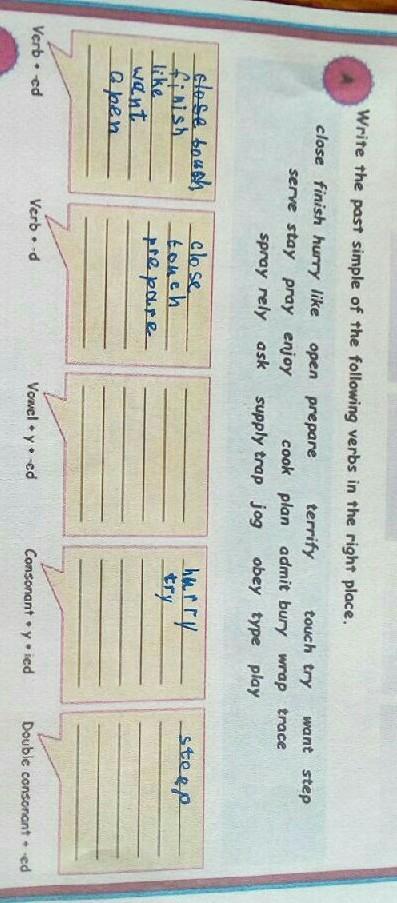 A
Write the past simple of the following verbs in the right place.
close finish hurry like open prepare terrify touch try want step
serve stay pray enjoy cook plan admit bury wrap trace
spray rely ask supply trap jog obey type play
close touch
finish
like
want
open
Verb + -ed
close
touch
prepare
Verb + -d
Vowel + y + -ed
hurry
try
Consonant + y + ied
steep
Double consonant + -ed